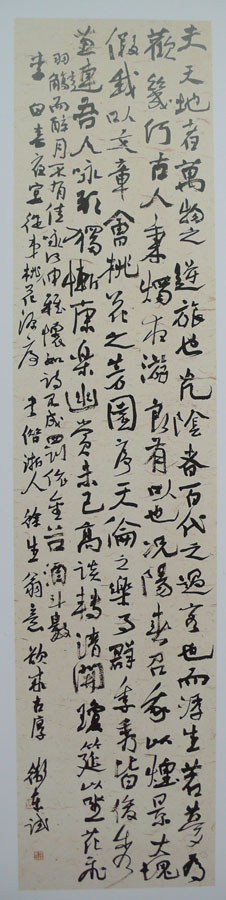 夫天地者萬物之逆旅也光陰者百代之過客也而浮生若夢為
歡幾何古人秉燭夜游良有以也況陽春召我以煙景大塊
假我以文章會桃花之芳園序天倫之樂事群季秀皆俊
惠連吾人詠歌獨慚康樂幽賞未已高談轉清開瓊筵以坐花飛
羽觴而醉月不有佳詠何伸雅懷如詩不成罰依金谷酒斗數
李白春夜宴從弟桃花源序 借浙人徐生翁意 古厚 衛東試